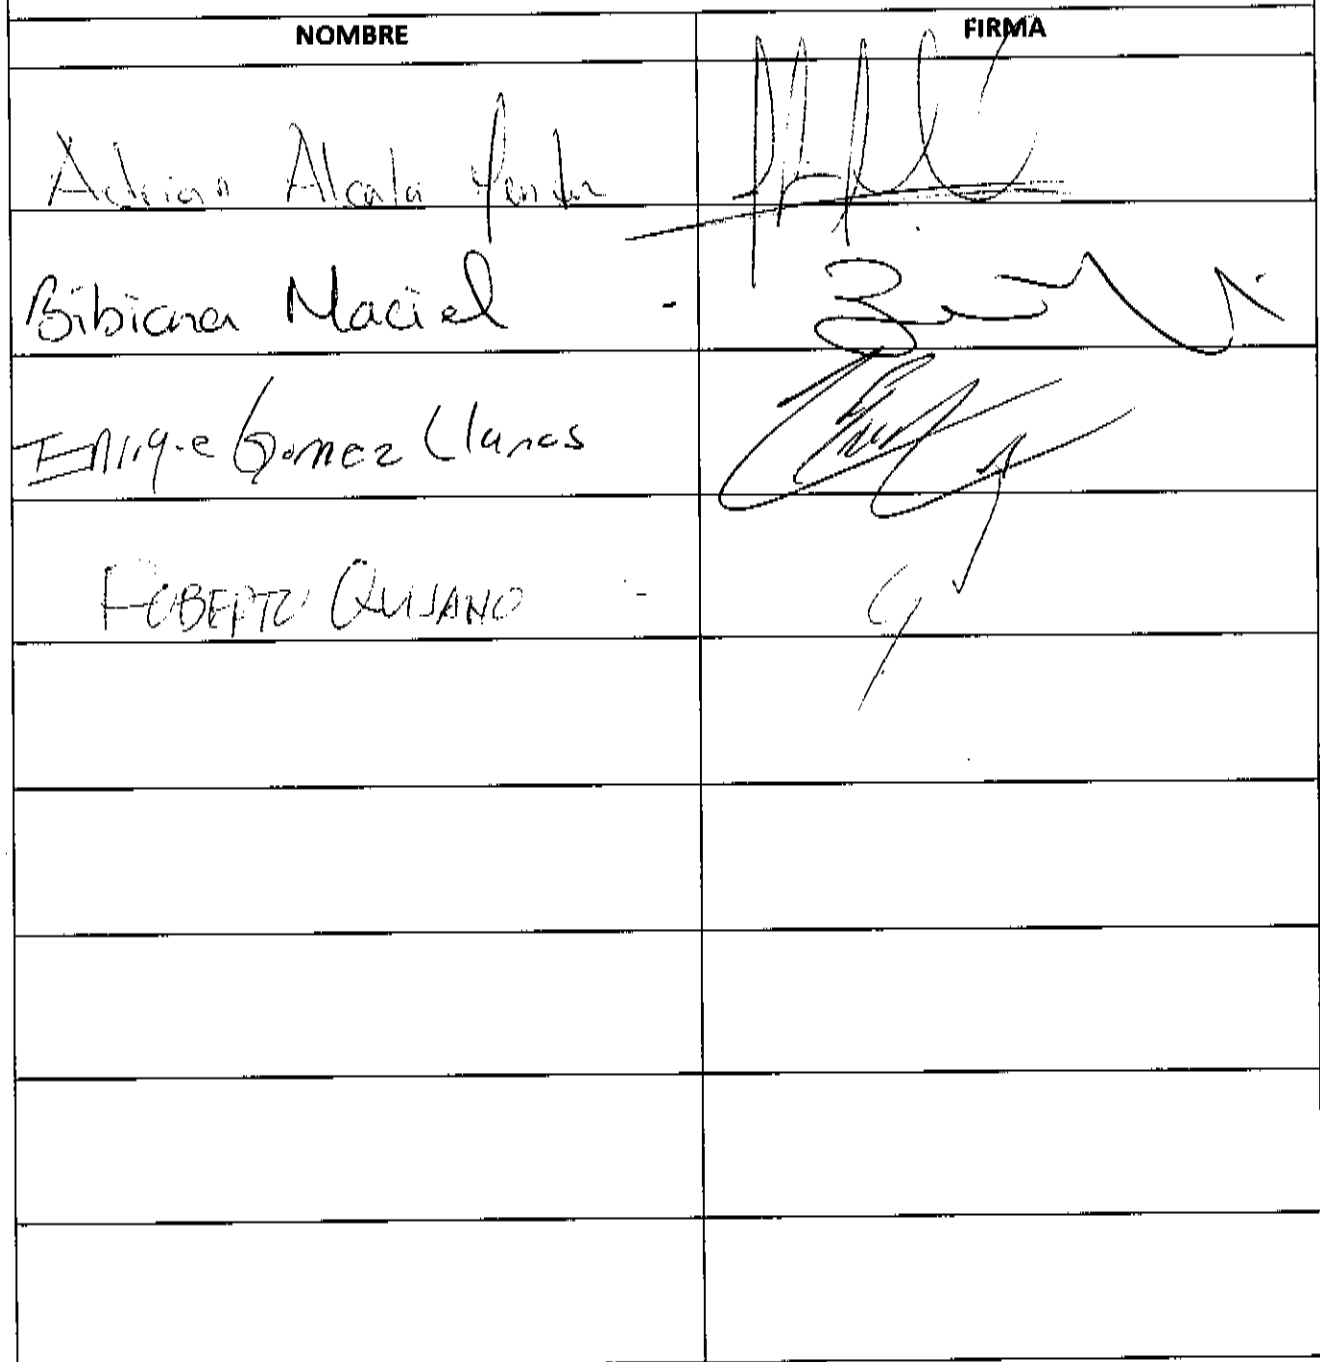 NOMBRE FIRMA
Adrian Alcala
Bibiana Maciel -
Enrique Gomez Llanas
ROBERTO QUIJANO -